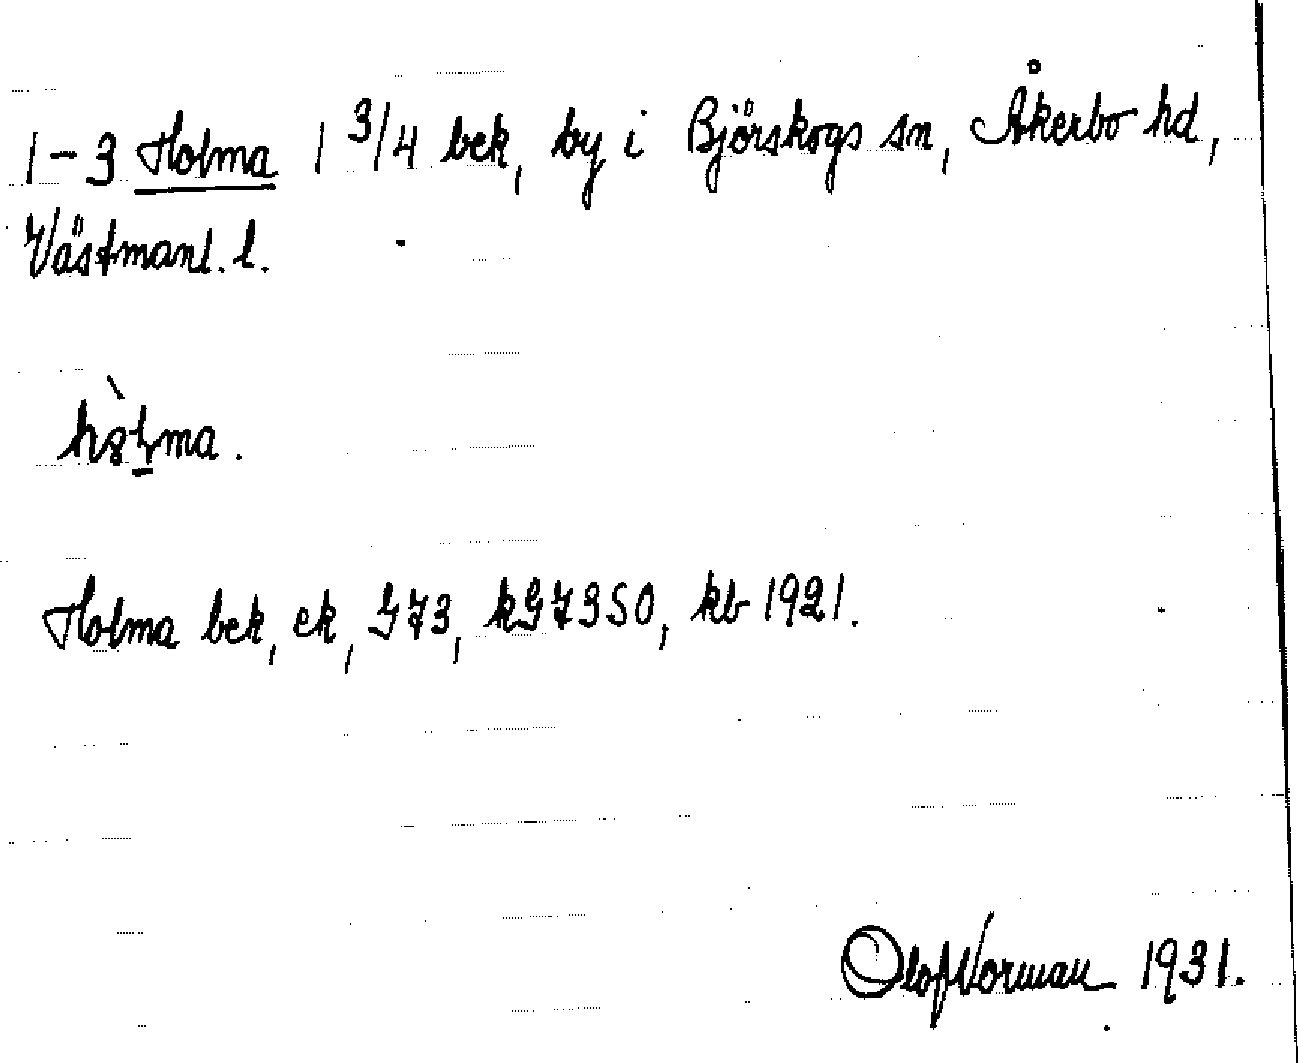 1-3 Holma 1 3/4 bek, by i Björskogs sn, Åkerbo hd,
Västmanl. l.
Holma bek, ek, GJ3, kGJ350, kb 1921.
Olof Norman 1931.